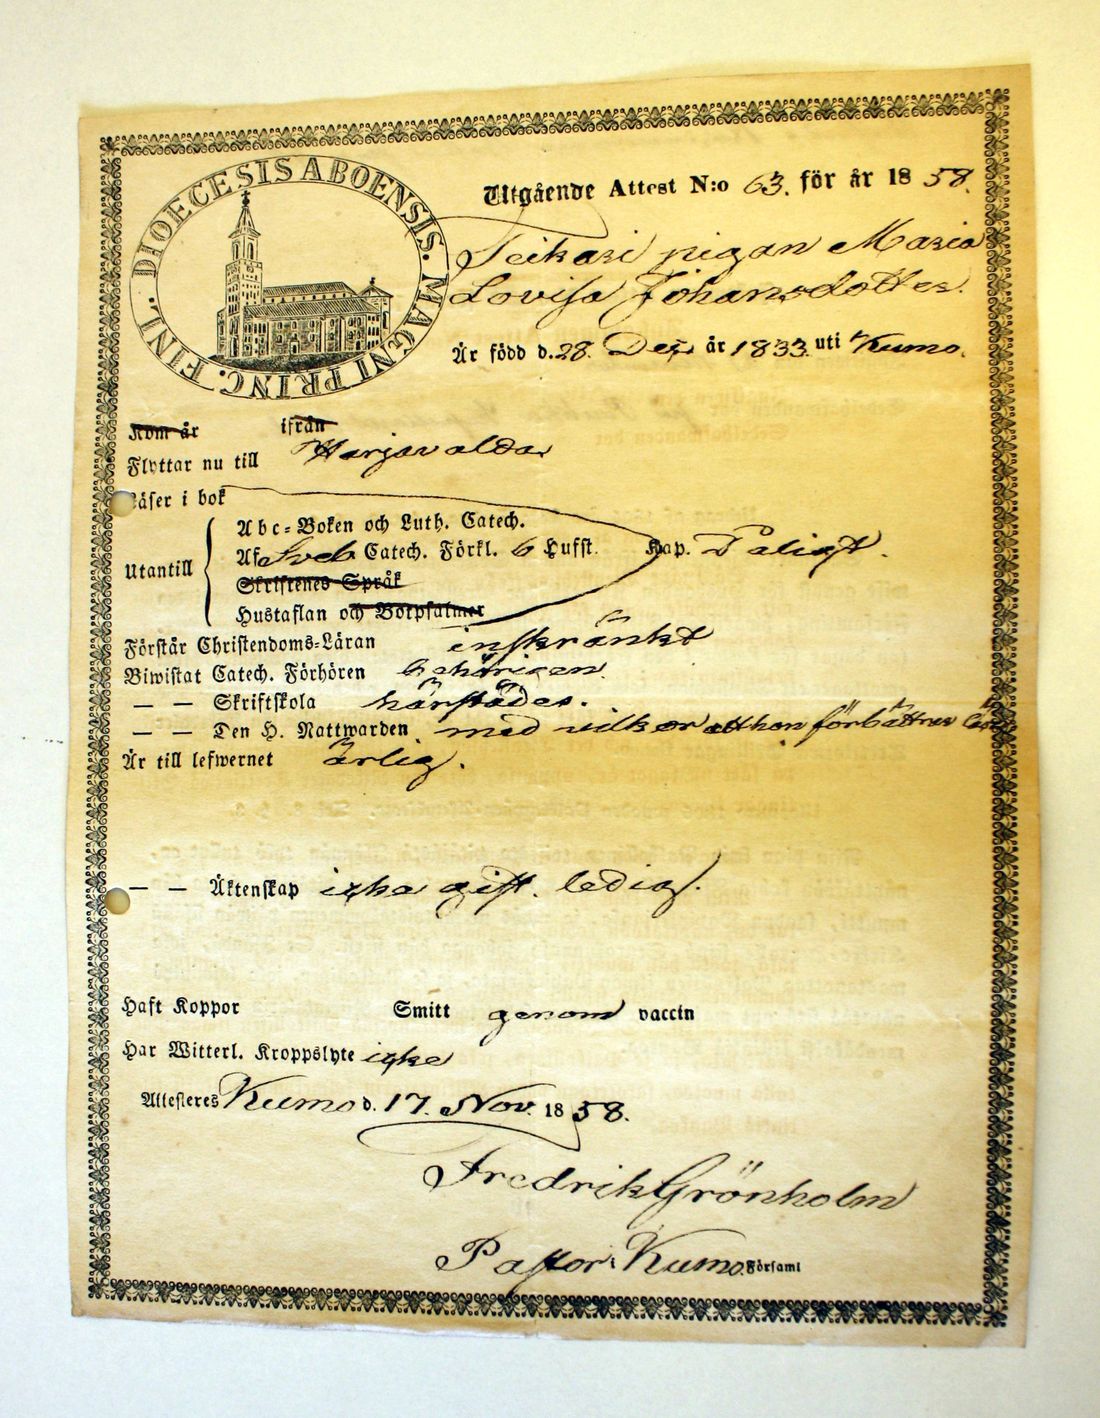 DIOECESIS ABOENSIS. MAGNI PRINC. FINL.
Utgående Attest N:o 63. för år 1858.
Peikari pigan Maria
Lovisa Johansdotter.
Är född d. 28. Dec. år 1833. uti Kumo.
Kom är ifrån
Flyttar nu till Harjavalda
Läser i bok
Utantill
Abc-Boken och Luth. Catech.
Af Sveb Catech. Förkl. 6 Hufst. Kap. Dåligt.
Skriftenes Språk
Hustaflan och Botpsalmer
Förstår Christendoms-Läran inskränkt
Biwistat Catech. Förhören behörigen.
— — Skriftskola härstädes.
— — Den H. Nattwarden med vilkor att hon förbättrar
Är till lefwernet ärlig.
— — Äktenskap icke gift. ledig.
Haft Koppor Smitt genom vaccin
Har Witterl. Kroppslyte icke
Attesteres Kumo d. 17. Nov. 1858.
Fredrik Grönholm
Pastor i Kumo Församl